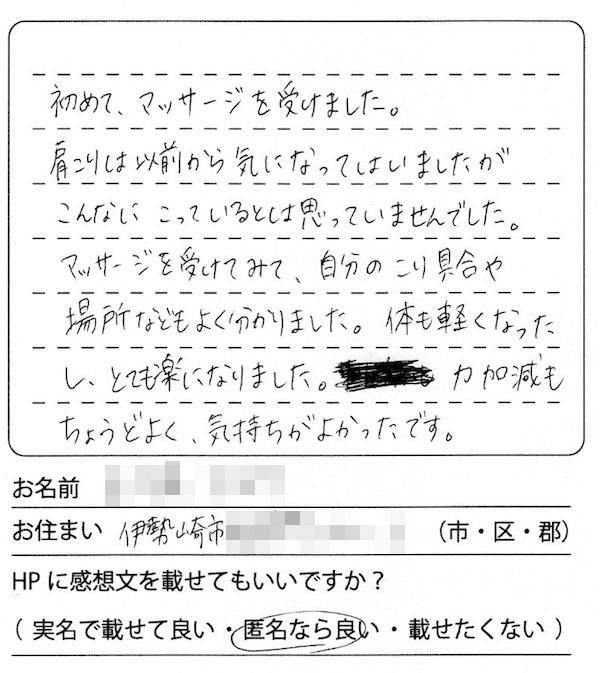 初めて、マッサージを受けました。
肩こりは以前から気になってはいましたが
こんなに こっているとは思っていませんでした。
マッサージを受けてみて、自分のこり具合や
場所などもよく分かりました。体も軽くなった
し、とても楽になりました。力加減も
ちょうどよく、気持ちがよかったです。
お名前
お住まい 伊勢崎市 （市・区・郡）
HPに感想文を載せてもいいですか？
（ 実名で載せて良い・匿名なら良い・載せたくない ）